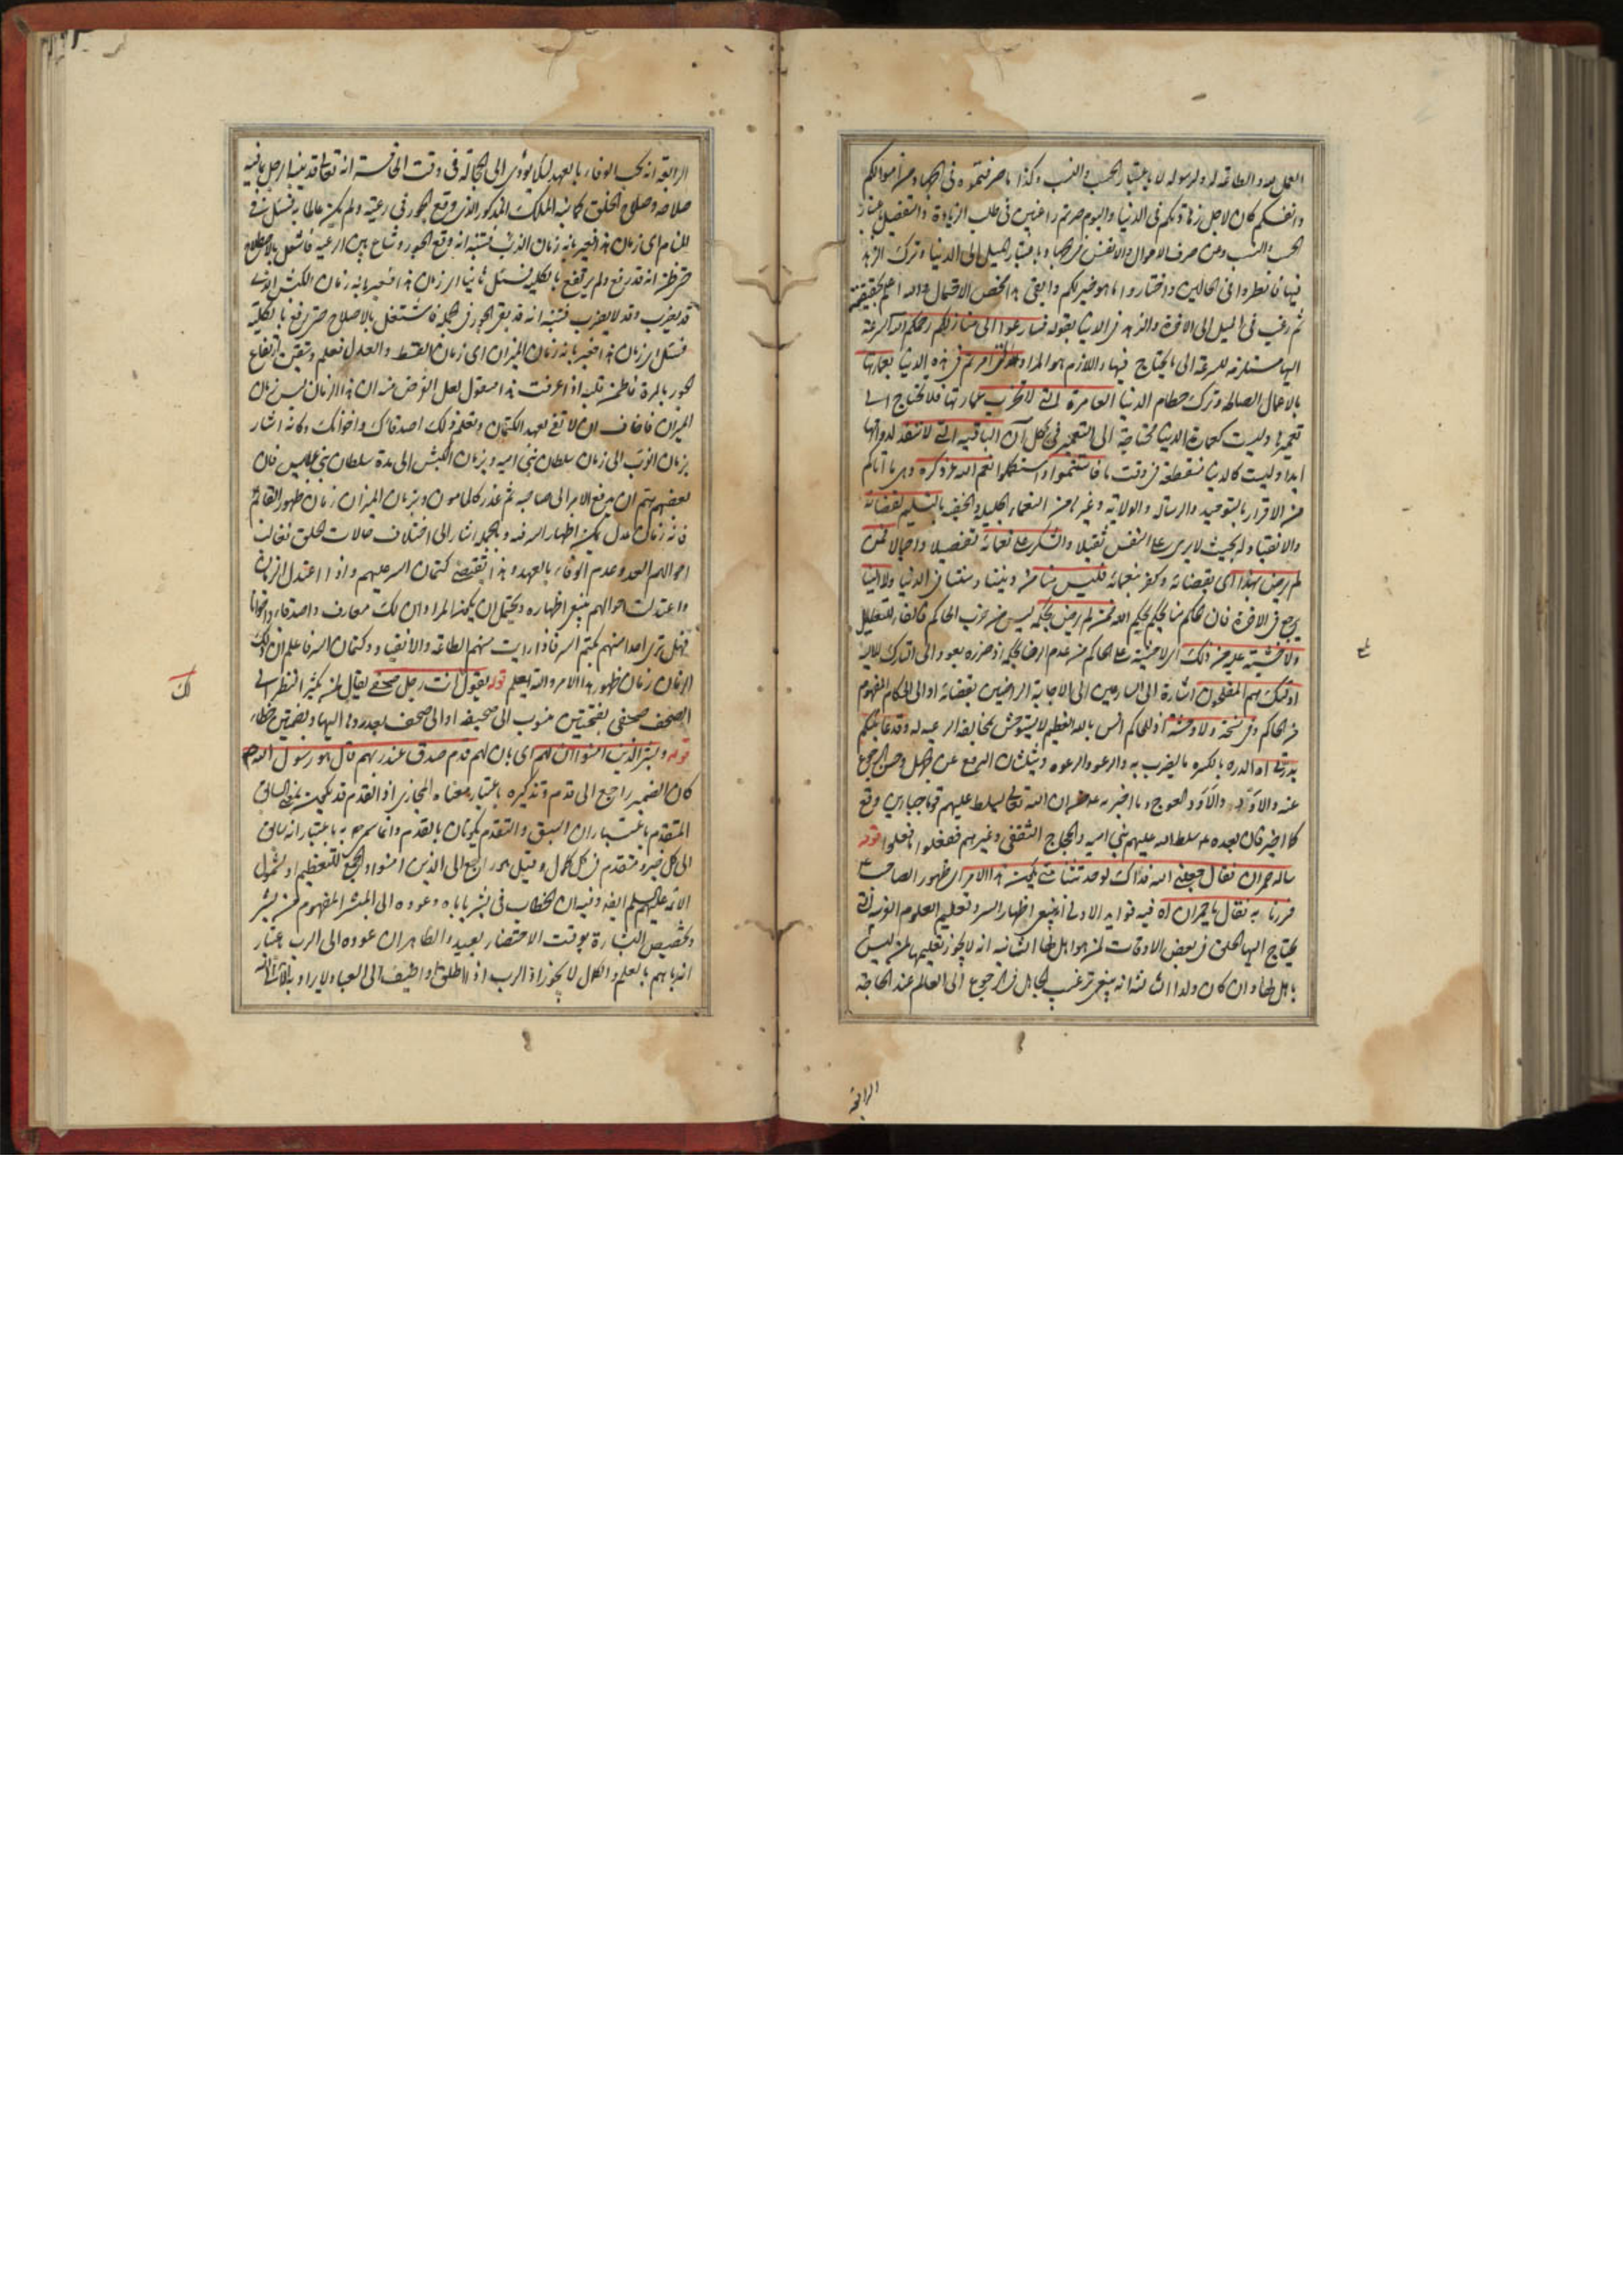 العمل لله والطاعة له ولرسوله لا باعتبار الحسب والنسب وكذا ما صرفتموه في الجهاد من اموالكم
وانفسكم كان لاجل زهادتكم في الدنيا واليوم صرتم راغبين في طلب الزيادة والتفضيل باعتبار
الحسب والنسب وعن صرف الاموال والانفس في الجهاد وباعتبار الميل الى الدنيا وترك الزهد
فيها فانظروا في الحالين واختاروا ما هو خير لكم وابقى هذا محض الاحتمال والله اعلم بحقيقته
ثم رغب في الميل الى الاخرة والزهد في الدنيا بقوله فسارعوا الى منازلكم رحمكم الله السرعة
اليها مستلزمة للسرعة الى ما يحتاج فيها واللازم هو المراد التي امرتم في هذه الدنيا بعمارتها
بالاعمال الصالحة وترك حطام الدنيا العامرة التي لا تخرب عمارتها فلا تحتاج الى
تعميرها وليست كعمارة الدنيا محتاجة الى التعمير في كل آن الباقية التي لا تنفد لدوامها
ابدا وليست كالدنيا منقطعة في وقت ما فاستتموا واستكملوا نعم الله عز ذكره وهي ما اتاكم
من الاقرار بالتوحيد والرسالة والولاية وغيرها من النعماء الجلية والخفية بالتسليم لقضائه
والانقياد له بحيث لا يرى على النفس ثقيلا والشكر على نعمائه تفصيلا واجمالا فمن
لم يرض بهذا اى بقضائه وكفر بنعمائه فليس منا من ديننا وسنتنا في الدنيا ولا الينا
يرجع في الاخرة فان حاكم منا يحكم بحكم الله فمن لم يرض بحكمه ليس من حزب الحاكم فالفاء للتعليل
ولا خشية عليه من ذلك اى لا خشية على الحاكم من عدم الرضا بحكمه اذ ضرره يعود الى التارك له
اولئك هم المفلحون اشارة الى السارعين الى الاجابة الراضين بقضائه او الى الحكام المفهوم
من الحاكم وفي نسخة ولا وحشة اذ الحاكم انس بالله العظيم لا يستوحش بمخالفة الرعية له وقد عاتبتكم
بدرتي اه الدرة بالكسرة ما يضرب به والرعو والرعوة ويثلثان الرجوع عن الجهل وحسن الرجوع
عنه والاود والعوج وما اخبر به ع من ان الله تعالى يسلط عليهم قوما جبارين وقع
كما اخبر فان بعده ع سلط الله عليهم بني امية والحجاج الثقفي وغيرهم ففعلوا ما فعلوا قوله
ساله حمران فقال جعلني الله فداك لو حدثتنا متى يكون هذا الامر اى ظهور الصاحب ع
فسررنا به فقال يا حمران اه فيه فوايد الاولى انه ينبغي اظهار السر وتعليم العلوم الغريبة التي
يحتاج اليها الخلق في بعض الاوقات لمن هو اهل لها الثانية انه لا يجوز تعليمها لمن ليس
باهل لها وان كان ولدا الثالثة انه ينبغي ترغيب الجاهل في الرجوع الى العالم عند الحاجة
الرابعة
الرابعة انه يجب الوفاء بالعهد لئلا يؤدى الى الخجالة في وقت الخامسة انه تعالى قد ينبه الرجل بما فيه
صلاحه وصلاح الخلق كما نبه الملك المذكور الذى وقع الجور في رعيته ولم يكن عالما به فسئل في
المنام اى زمان هذا فعبر بانه زمان الذئب فتنبه انه وقع الجور وشاع بين الرعية فاشتغل بالاصلاح
حتى ظن انه قد رفع ولم يرتفع بالكلية فسئل ثانيا اى زمان هذا فعبر بانه زمان الكبش الذى
قد يضرب وقد لا يضرب فتنبه انه قد بقي الجور في الجملة فاشتغل بالاصلاح حتى رفع بالكلية
فسئل اى زمان هذا فعبر بانه زمان الميزان اى زمان القسط والعدل فعلم وتيقن ارتفاع
الجور بالمرة فاطمئن قلبه اذا عرفت هذا فنقول لعل الغرض منه ان هذا الزمان ليس زمان
الميزان فاخاف ان لا تفي بعهد الكتمان وتعلم ذلك اصدقائك واخوانك وكانه اشار
بزمان الذئب الى زمان سلطان بني امية وبزمان الكبش الى مدة سلطان بني عباس فان
بعضهم يهتم ان يدفع الامر الى صاحبه ثم غدر كالمامون وبزمان الميزان زمان ظهور القائم ع
فانه زمان عدل يمكن اظهار السر فيه وبالجملة اشار الى اختلاف حالات الخلق فغالب
احوالهم الغدر وعدم الوفاء بالعهد وهذا يقتضي كتمان السر عليهم واذا اعتدل الزمان
واعتدلت احوالهم ينبغي اظهاره ويحتمل ان يكون المراد ان لك معارف واصدقاء واخوانا
فهل ترى احدا منهم يكتم السر فاذا رايت منهم الطاعة والانقياد وكتمان السر فاعلم ان ذلك
الزمان زمان ظهور هذا الامر والله يعلم قوله يقول انت رجل صحفي يقال لمن يكثر النظر الى
الصحف صحفي بفتحتين منسوب الى صحيفة او الى صحف بعد ردها اليها وبضمتين خطاء
قوله وبشر الذين امنوا ان لهم اى بان لهم قدم صدق عند ربهم قال هو رسول الله ص
كان الضمير راجع الى قدم وتذكيره باعتبار معناه المجازى اذ القدم قد يكون بمعنى السابق
المتقدم باعتبار ان السبق والتقدم يكونان بالقدم وانما سمى ص به باعتبار انه سابق
الى كل خير ومتقدم في كل كمال وقيل هو راجع الى الذين امنوا والجمع للتعظيم او لشمول
الائمة عليهم السلم ايضا وفيه ان الخطاب في بشر ياباه وعوده الى المبشر المفهوم من بشر
وتخصيص البشارة بوقت الاحتضار بعيد والظاهر ان عوده الى الرب باعتبار
انه رباهم بالعلم والكمال لا يجوز اذ الرب اذا اطلق او اضيف الى العباد لا يراد به الا الله